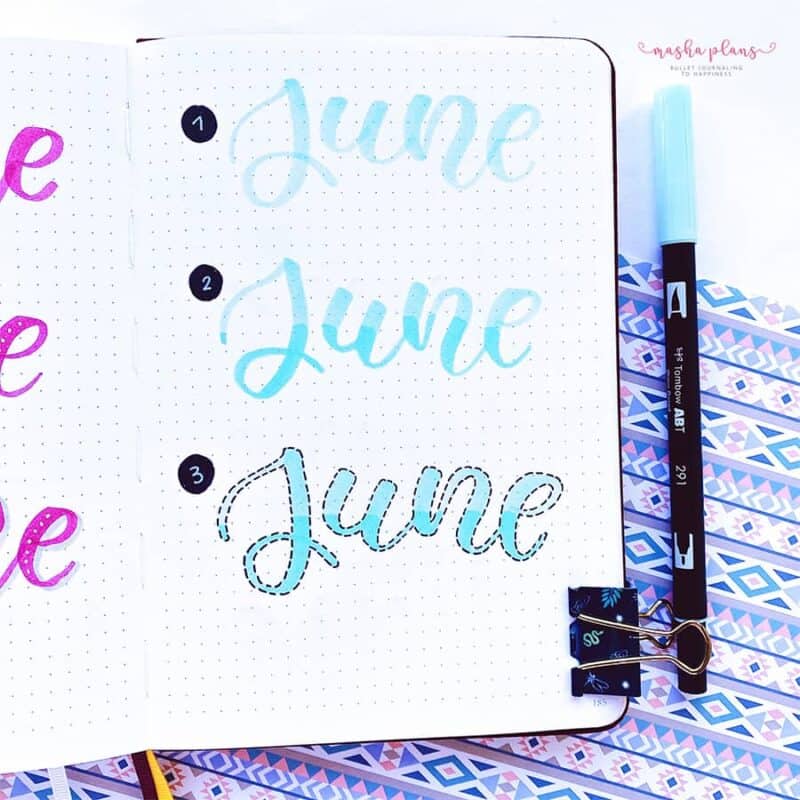 masha plans
BULLET JOURNALING
TO HAPPINESS
e
e
e
1
June
2
June
3
June
Tombow ABT
291
185